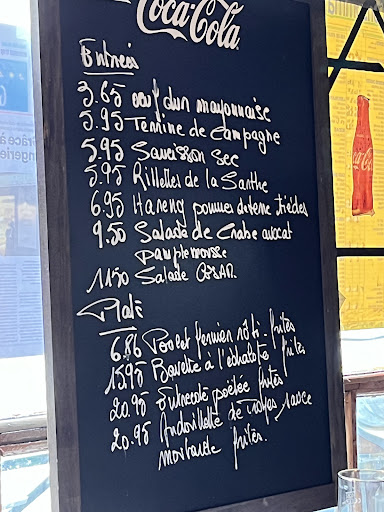 Coca-Cola
Entrées
3.65 œuf dur mayonnaise
5.95 Terrine de Campagne
5.95 Saucisson Sec
5.95 Rillettes de la Sarthe
6.95 Hareng pommes de terre tièdes
9.50 Salade de Crabe avocat
pamplemousse
11.50 Salade CÉSAR
Plats
Poulet fermier rôti. frites
15.95 Bavette à l'échalote frites
20.95 Entrecôte poêlée frites
20.95 Andouillette de Troyes sauce
moutarde frites.